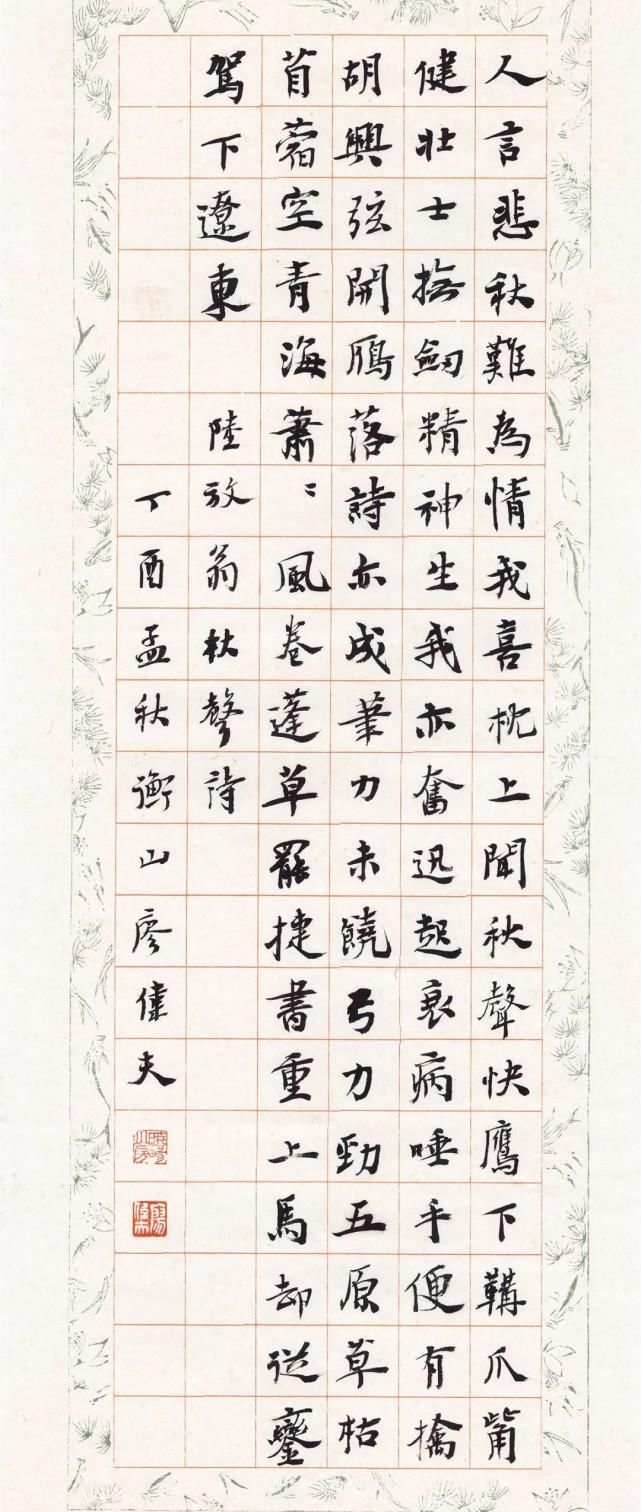 人言悲秋難為情我喜枕上聞秋聲快鷹下韝爪觜
健壯士撫劍精神生我亦奮迅起衰病唾手便有擒
胡興弦開鴈落詩亦成筆力未饒弓力勁五原草枯
苜蓿空青海蕭〻風卷蓬草罷捷書重上馬却從鑾
駕下遼東 陸放翁秋聲詩
丁酉孟秋衡山廖偉夫